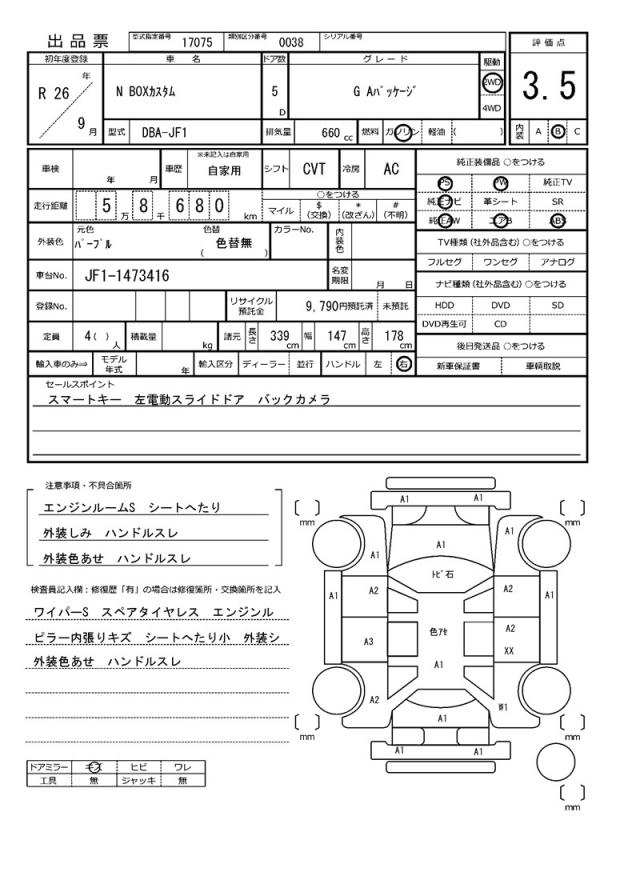 出品票 型式指定番号 17075 類別区分番号 0038 シリアル番号
評価点
3.5
内装 A B C
初年度登録 車名 ドア数 グレード 駆動
R 26 年 9 月
N BOXカスタム 5 D G Aパッケージ 2WD
4WD
型式 DBA-JF1 排気量 660 cc 燃料 ガソリン 軽油 ( )
車検 年 月 車歴 ※未記入は自家用 自家用 シフト CVT 冷房 AC
走行距離 5 万 8 千 6 8 0 km
○をつける
マイル $ (交換) * (改ざん) # (不明)
外装色 元色 パープル 色替 色替無 ( ) カラーNo. 内装色
車台No. JF1-1473416 名変期限 月 日
登録No. リサイクル預託金 9,790円預託済 未預託
定員 4( ) 人 積載量 kg 諸元 長さ 339 cm 幅 147 cm 高さ 178 cm
輸入車のみ⇒ モデル年式 年 輸入区分 ディーラー 並行 ハンドル 左 右
純正装備品 ○をつける
PS PW 純正TV
純正ナビ 革シート SR
純正AW エアB ABS
TV種類(社外品含む)○をつける
フルセグ ワンセグ アナログ
ナビ種類(社外品含む)○をつける
HDD DVD SD
DVD再生可 CD
後日発送品 ○をつける
新車保証書 車輌取説
セールスポイント
スマートキー 左電動スライドドア バックカメラ
注意事項・不具合箇所
エンジンルームS シートへたり
外装しみ ハンドルスレ
外装色あせ ハンドルスレ
検査員記入欄：修復歴「有」の場合は修復箇所・交換箇所を記入
ワイパーS スペアタイヤレス エンジンル
ピラー内張りキズ シートへたり小 外装シ
外装色あせ ハンドルスレ
ドアミラー キズ ヒビ ワレ
工具 無 ジャッキ 無
A1 A1
mm mm
A1 A1 A1
トビ石
A1 A2 A2 A1
色アセ
A3 A2
XX
A1
A2 W1
A1
mm mm
A1 A1
mm